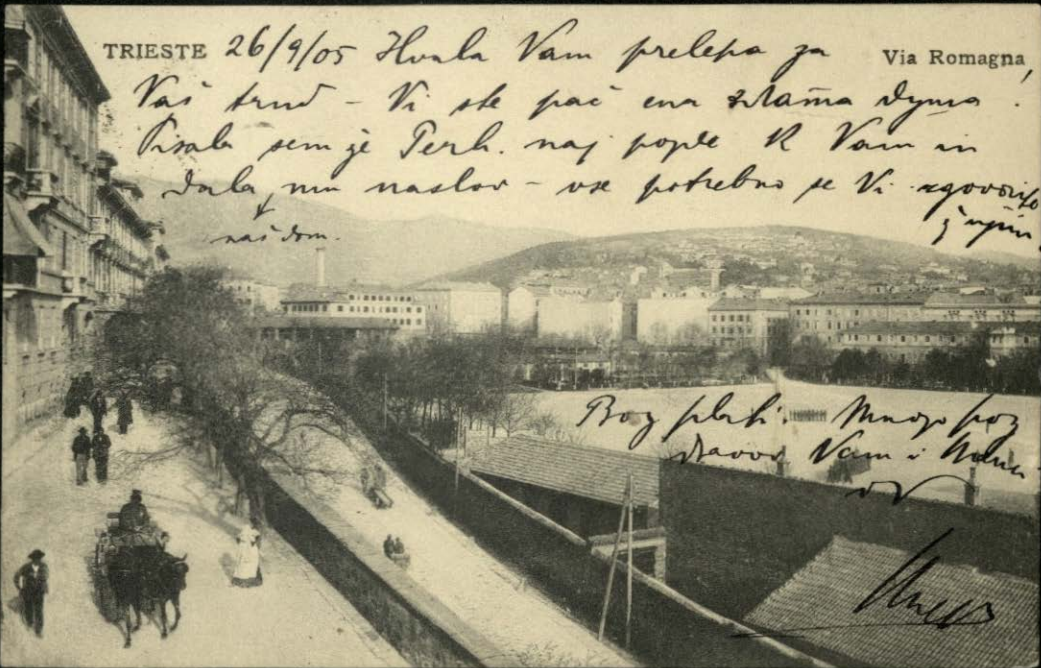 TRIESTE 26/9/05 Hvala Vam prelepa za Via Romagna
Vaš trud - Vi ste pač ena zlata duša!
Pisala sem že Perh. naj pojde k Vam in
dala mu naslov - vse potrebno se Vi zgovorite
ž njim.
naš dom.
Bog plati! Mnogo poz
dravov Vam i